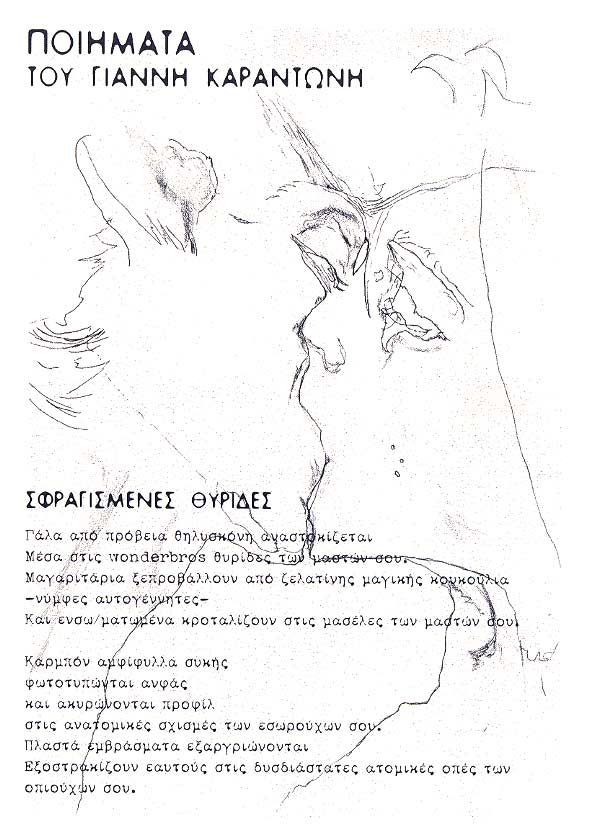 ΠΟΙΗΜΑΤΑ
ΤΟΥ ΓΙΑΝΝΗ ΚΑΡΑΝΤΩΝΗ
ΣΦΡΑΓΙΣΜΕΝΕΣ ΘΥΡΙΔΕΣ
Γάλα από πρόβεια θηλυσκόνη αναστοκίζεται
Μέσα στις wonderbros θυρίδες των μαστών σου.
Μαγαριτάρια ξεπροβάλλουν από ζελατίνης μαγικής κουκούλια
-νύμφες αυτογέννητες-
Και ενσω/ματωμένα κροταλίζουν στις μασέλες των μαστών σου.
Καρμπόν αμφίφυλλα συκής
φωτοτυπώνται ανφάς
και ακυρώνονται προφίλ
στις ανατομικές σχισμές των εσωρούχων σου.
Πλαστά εμβράσματα εξαργυρώνονται
Εξοστρακίζουν εαυτούς στις δυσδιάστατες ατομικές οπές των
οπιούχων σου.